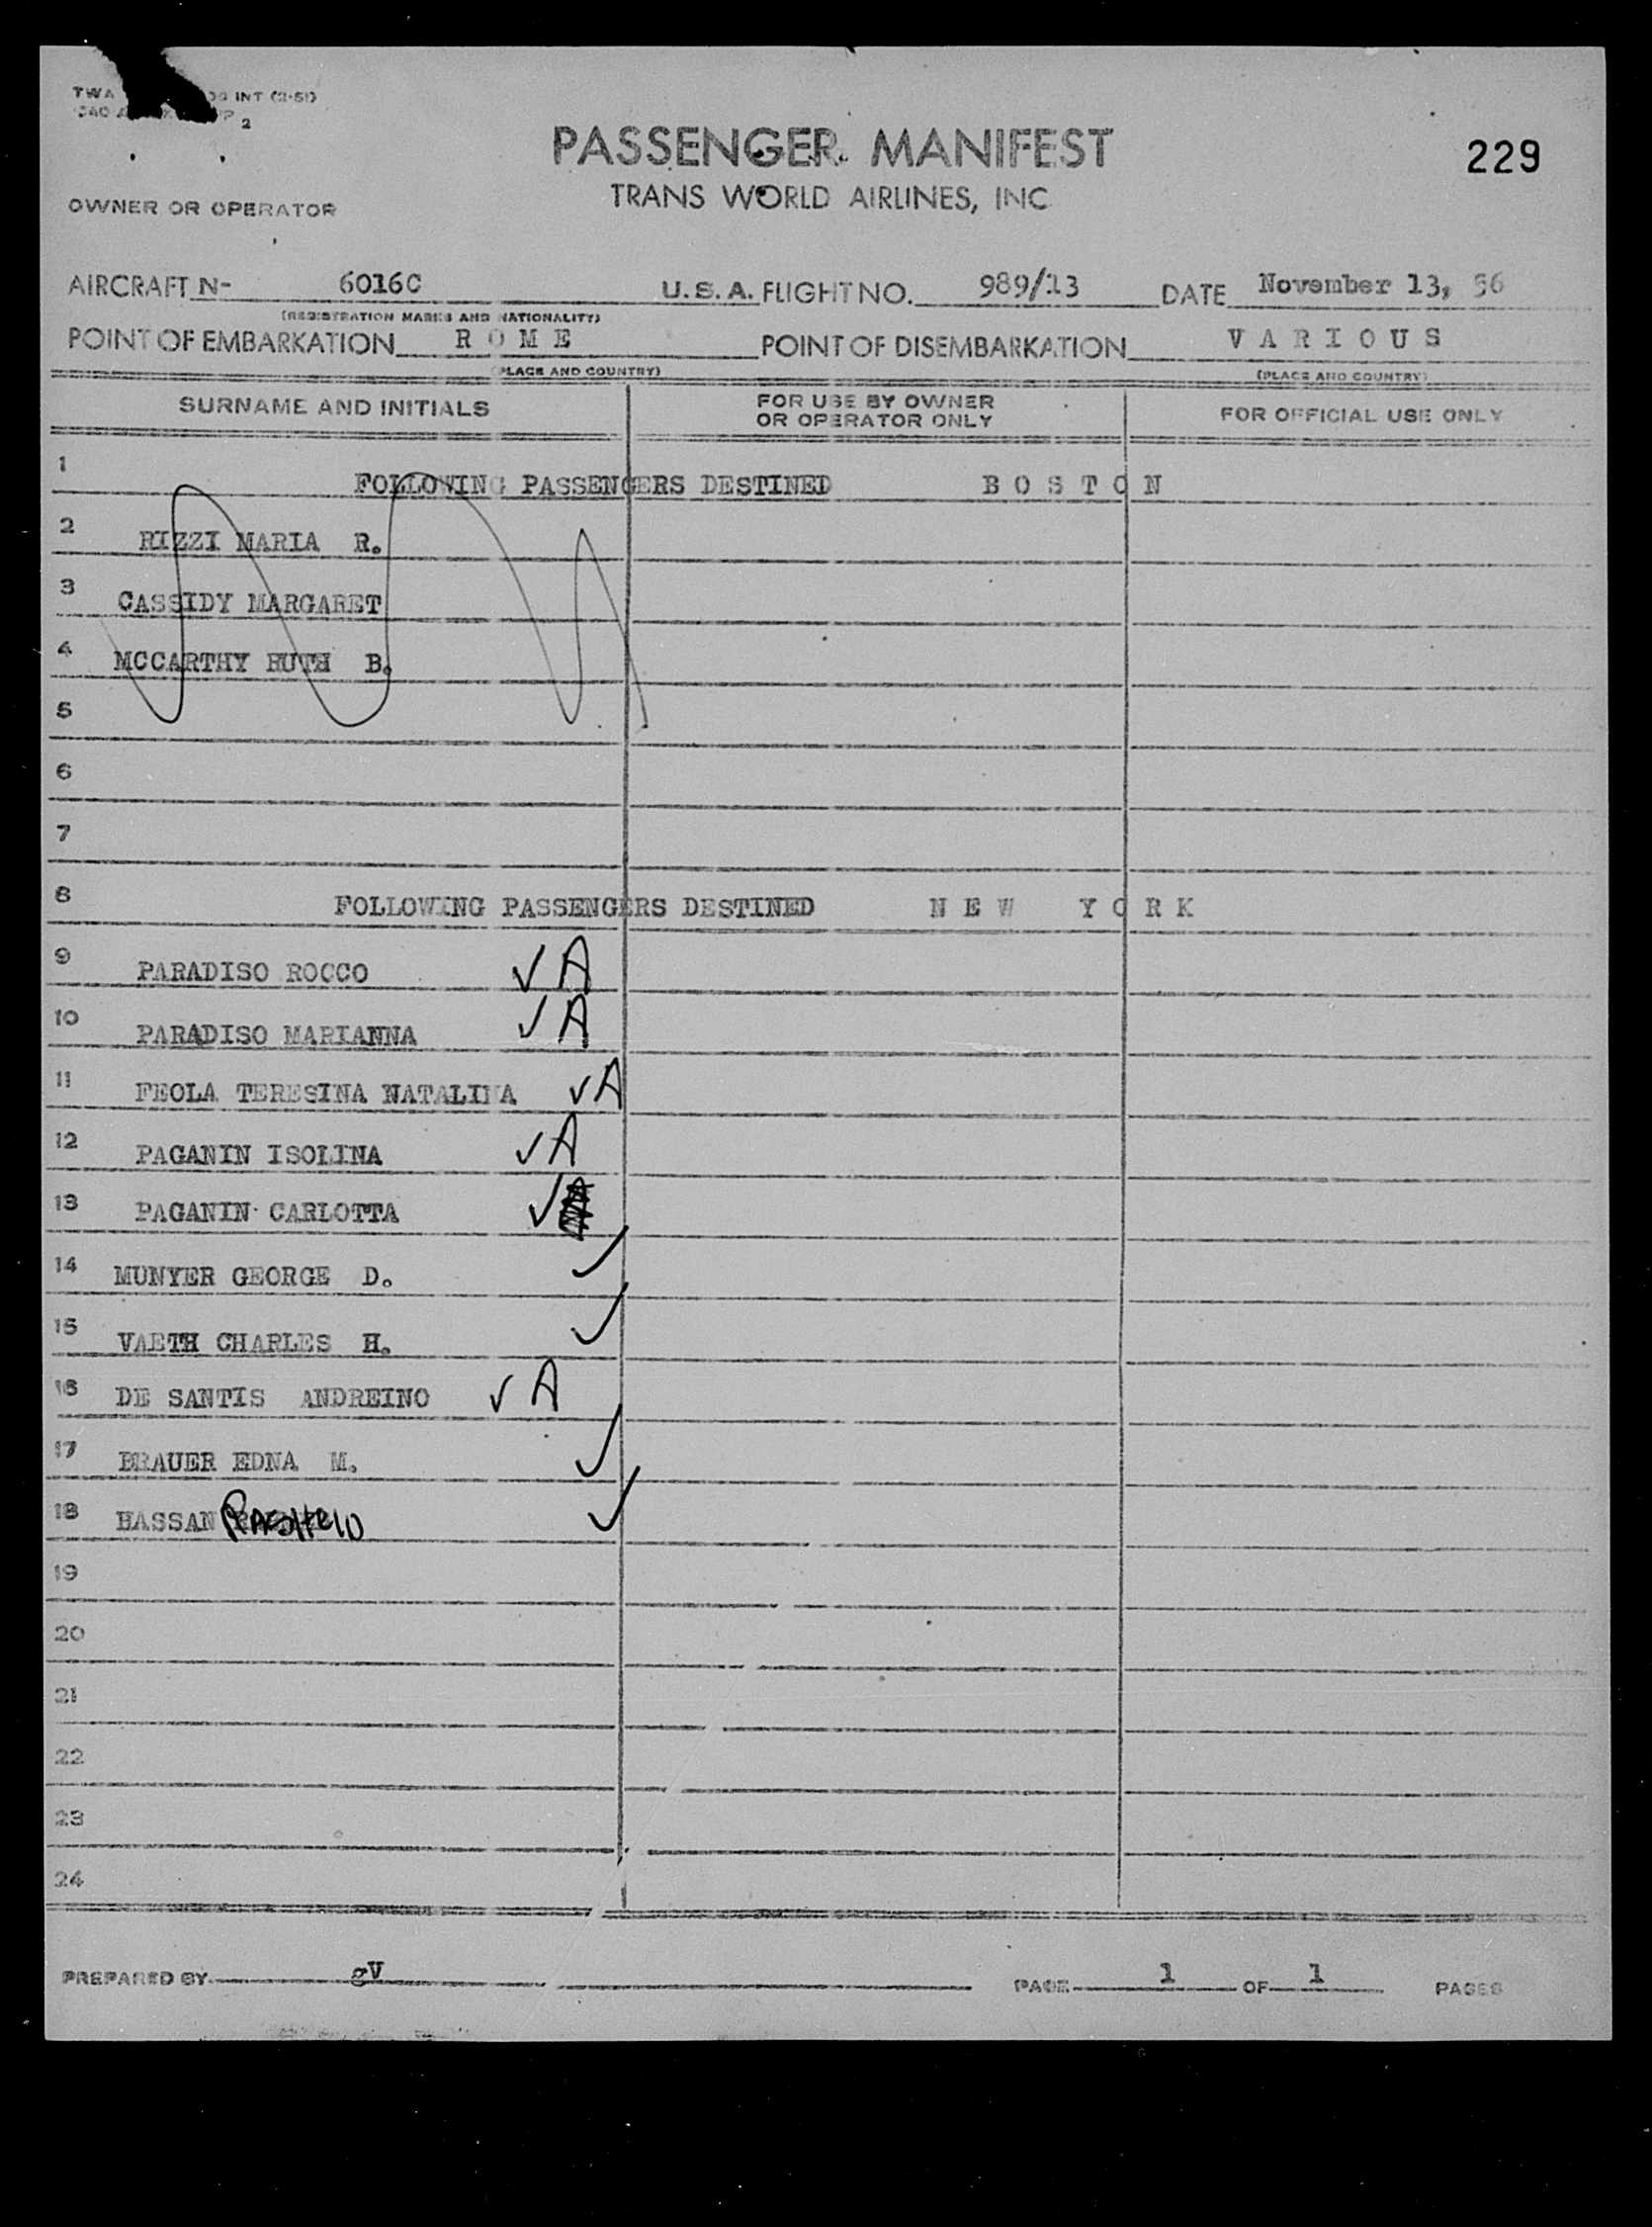 TWA INT (2-51)
2
PASSENGER MANIFEST
229
TRANS WORLD AIRLINES, INC
OWNER OR OPERATOR
AIRCRAFT N- 6016C U.S.A. FLIGHT NO. 989/13 DATE November 13, 56
(REGISTRATION MARKS AND NATIONALITY)
POINT OF EMBARKATION R O M E POINT OF DISEMBARKATION V A R I O U S
(PLACE AND COUNTRY) (PLACE AND COUNTRY)
SURNAME AND INITIALS FOR USE BY OWNER OR OPERATOR ONLY FOR OFFICIAL USE ONLY
1 FOLLOWING PASSENGERS DESTINED B O S T O N
2 RIZZI MARIA R.
3 CASSIDY MARGARET
4 MCCARTHY RUTH B.
5
6
7
8 FOLLOWING PASSENGERS DESTINED N E W Y O R K
9 PARADISO ROCCO ✓ A
10 PARADISO MARIANNA ✓ A
11 FEOLA TERESINA NATALINA ✓ A
12 PAGANIN ISOLINA ✓ A
13 PAGANIN CARLOTTA ✓
14 MUNYER GEORGE D. ✓
15 VAETH CHARLES H. ✓
16 DE SANTIS ANDREINO ✓ A
17 BRAUER EDNA M. ✓
18 HASSAN ✓
19
20
21
22
23
24
PREPARED BY gV PAGE 1 OF 1 PAGES